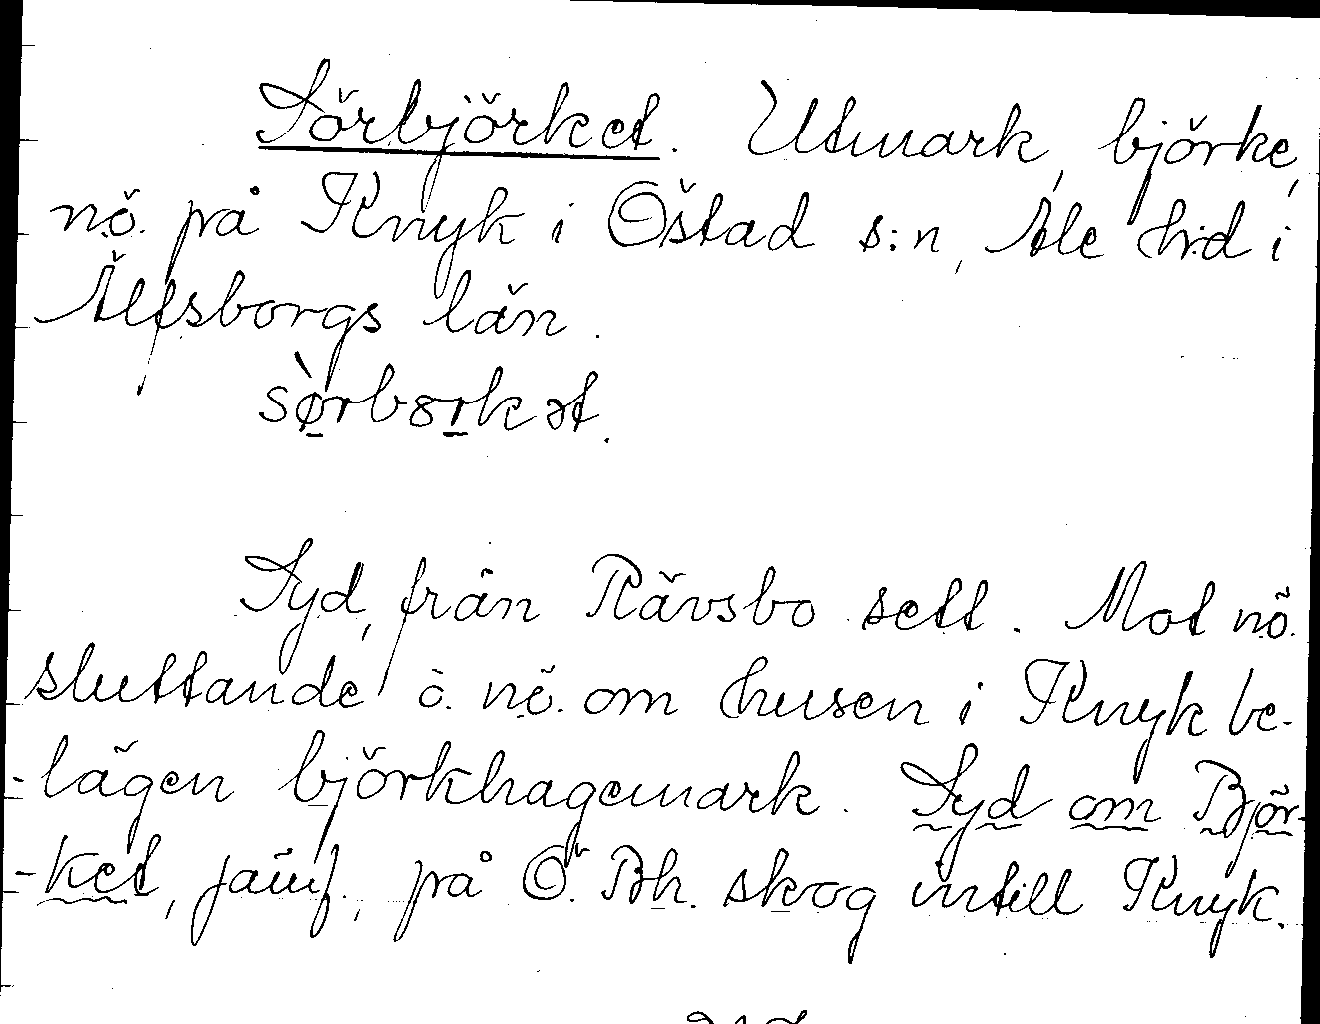 Sörbjörket. Utmark, björke,
nö. på Knyk i Östad s:n, Ale hd i
Älfsborgs län.
sørbɞrkət.
Syd, från Rävsbo sett. Mot nö.
sluttande ö. nö. om husen i Knyk be-
-lägen björkhagemark. Syd om Björ-
-ket, jämf., på Ö. Bh. skog intill Knyk.